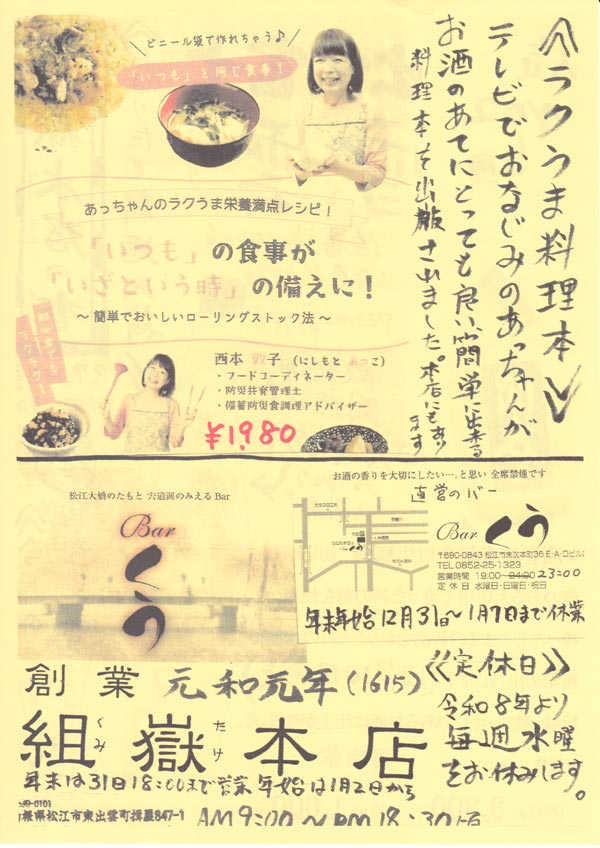 《ラクうま料理本》
テレビでおなじみのあっちゃんが
お酒のあてにとっても良い、簡単に出来る
料理本を出版されました。本店にもあり
ます
ビニール袋で作れちゃう♪
「いつも」と同じ食事!
あっちゃんのラクうま栄養満点レシピ!
「いつも」の食事が
「いざという時」の備えに!
~簡単でおいしいローリングストック法~
西本 敦子 (にしもと あつこ)
・フードコーディネーター
・防災共育管理士
・備蓄防災食調理アドバイザー
¥1,980
松江大橋のたもと 宍道湖のみえるBar
Bar
くう
お酒の香りを大切にしたい…。と思い 全席禁煙です
直営のバー
Bar くう
〒690-0843 松江市末次本町36 E・A・Dビル
TEL.0852-25-1323
営業時間 19:00~24:00 23:00
定休日 水曜日・日曜日・祝日
年末年始12月31日~1月7日まで休業
創業 元和元年(1615)
くみ たけ
組嶽本店
年末は31日18:00まで営業 年始は1月2日から
県松江市東出雲町揖屋847-1
AM9:00~PM18:30
《定休日》
令和8年より
毎週水曜
をお休みします。